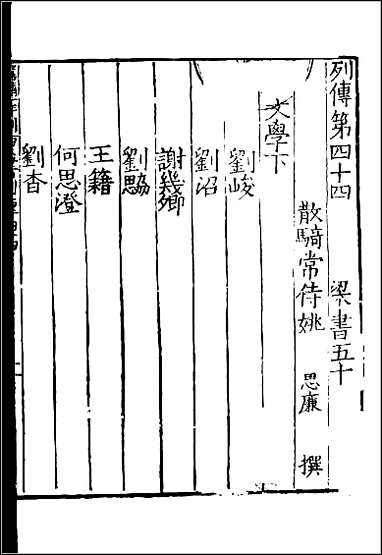 列傳第四十四　梁書五十
散騎常侍姚　思廉　撰
文學下
劉峻
劉沼
謝幾卿
劉勰
王籍
何思澄
劉杳